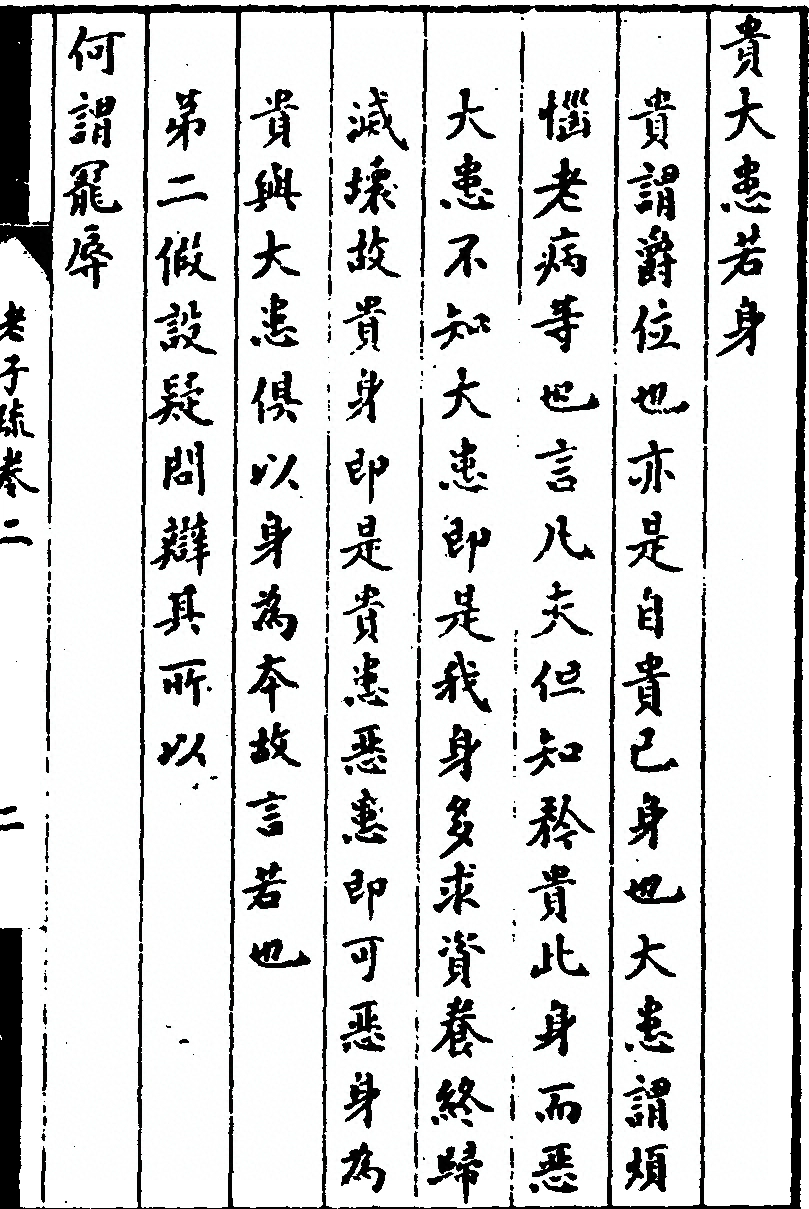 貴大患若身
貴謂爵位也亦是自貴已身也大患謂煩
惱老病等也言凡夫但知矜貴此身而惡
大患不知大患即是我身多求資養終歸
滅壞故貴身即是貴患惡患即可惡身為
貴與大患俱以身為本故言若也
第二假設疑問辯其所以
何謂寵辱
老子疏卷二
二